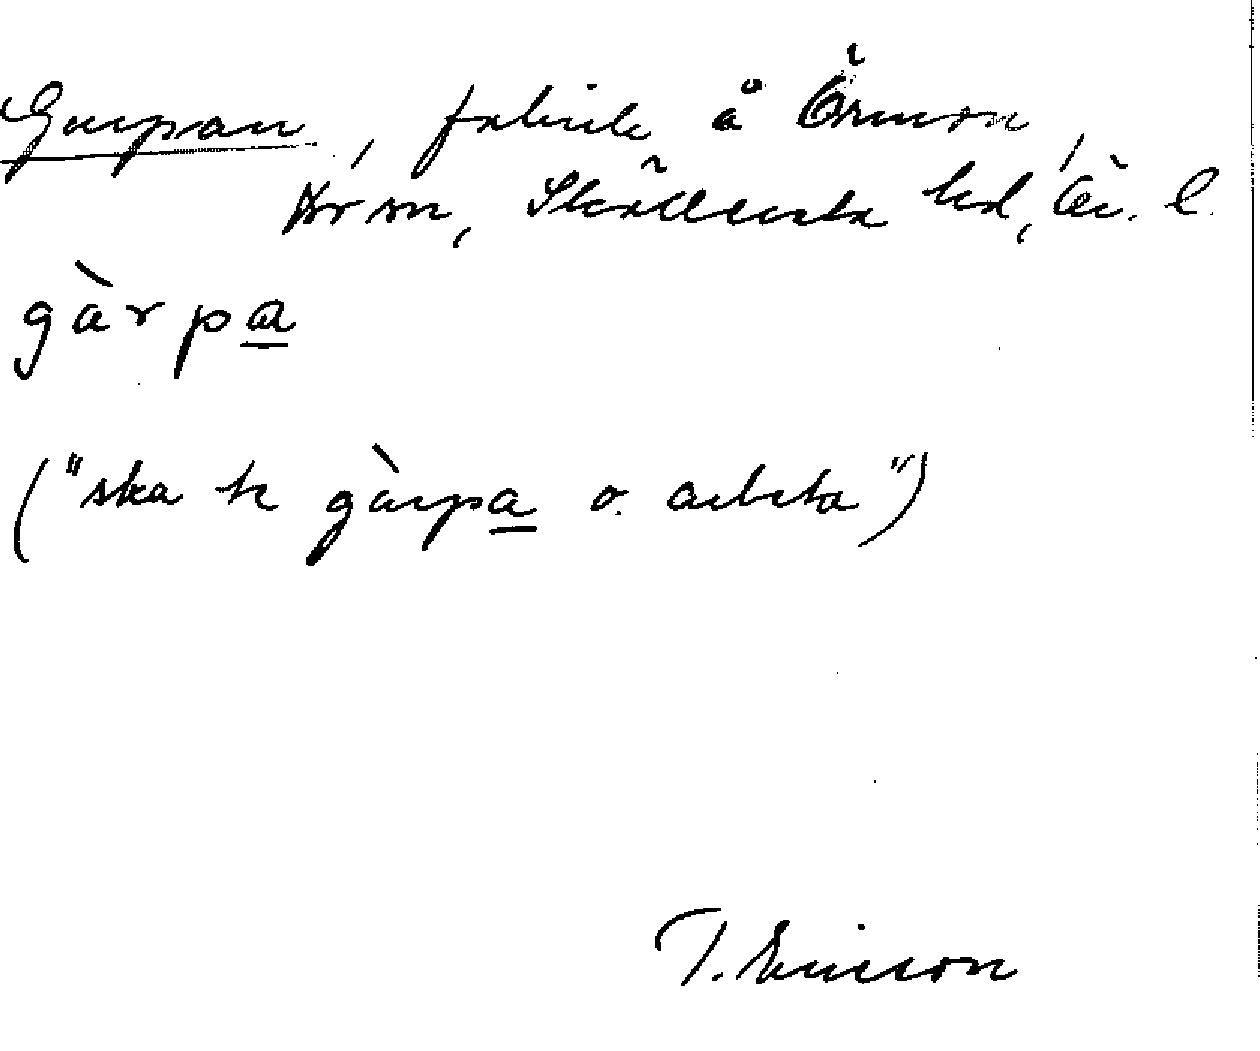 Garpan, fabrik å Örmon,
Krsn, Skällersta hd, Ör. l.
gàrpa
("ska te gàrpa o. arbeta")
T. Ericson